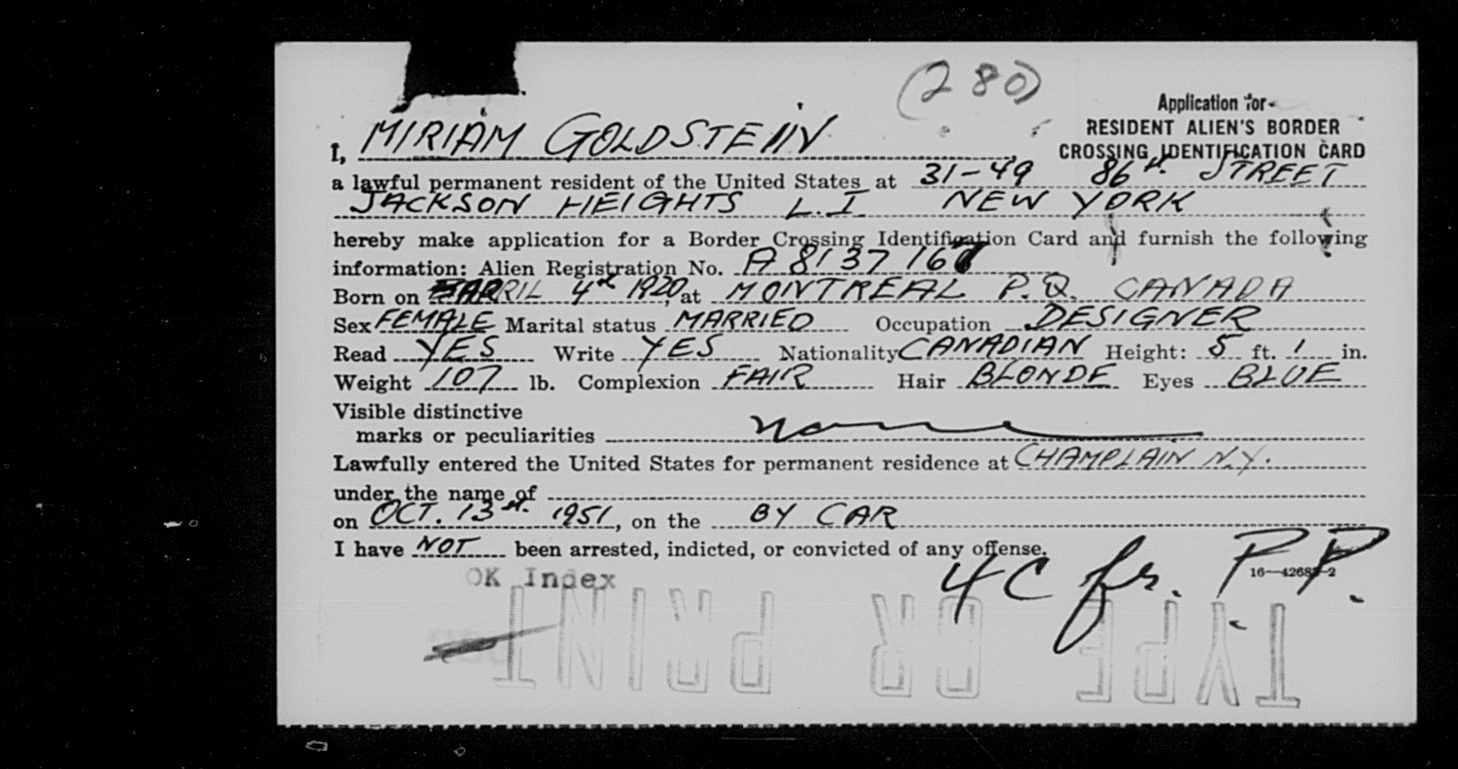 (280)
Application for
RESIDENT ALIEN'S BORDER
CROSSING IDENTIFICATION CARD
I, MIRIAM GOLDSTEIN
a lawful permanent resident of the United States at 31-49 86th STREET
JACKSON HEIGHTS L.I. NEW YORK
hereby make application for a Border Crossing Identification Card and furnish the following
information: Alien Registration No. A 8137 167
Born on APRIL 4th 1920, at MONTREAL P.Q. CANADA
Sex FEMALE Marital status MARRIED Occupation DESIGNER
Read YES Write YES Nationality CANADIAN Height: 5 ft. 1 in.
Weight 107 lb. Complexion FAIR Hair BLONDE Eyes BLUE
Visible distinctive
marks or peculiarities none
Lawfully entered the United States for permanent residence at CHAMPLAIN N.Y.
under the name of
on OCT. 13th 1951, on the BY CAR
I have NOT been arrested, indicted, or convicted of any offense.
4C fr. P.P.
OK Index
TYPE OR PRINT